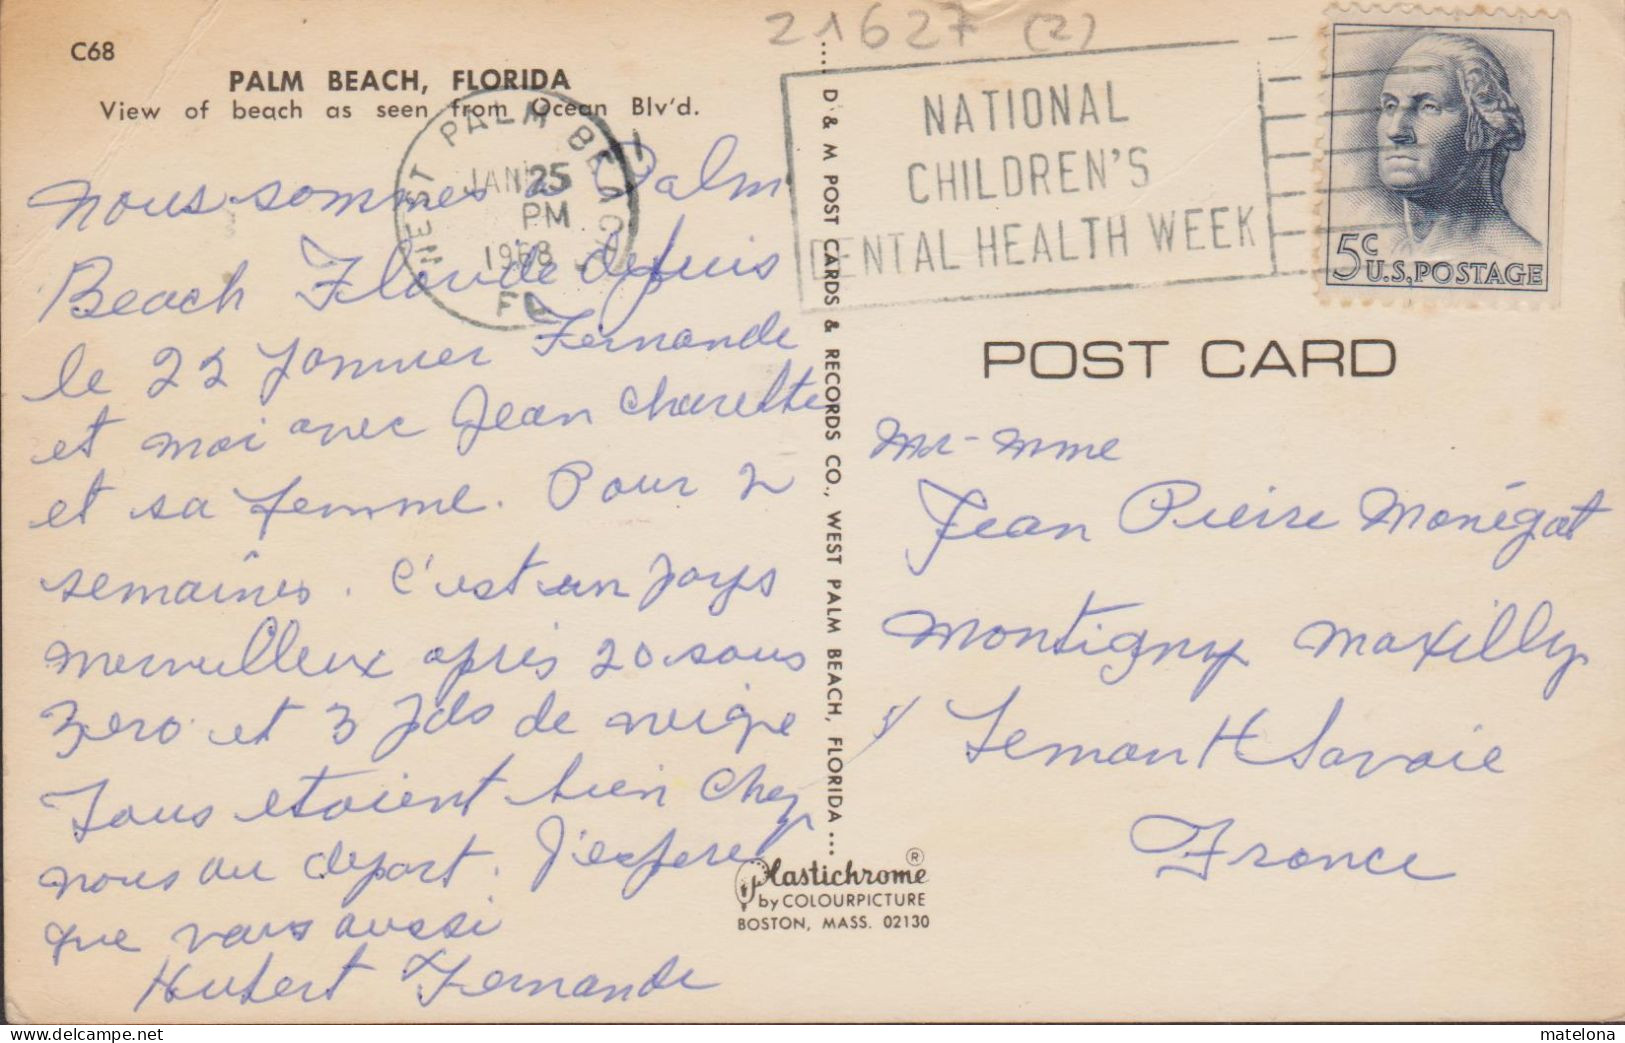 21627 (2)
C68
PALM BEACH, FLORIDA
View of beach as seen from Ocean Blv'd.
WEST PALM BEACH
JAN 25
PM
1968
FL
NATIONAL
CHILDREN'S
DENTAL HEALTH WEEK
5c
U.S. POSTAGE
POST CARD
nous sommes a Palm
Beach Floride depuis
le 22 Janvier Fernande
et moi avec Jean Charette
et sa femme. Pour 2
semaînes. C'est un pays
merveilleux après 20 sous
zero et 3 pds de neige
Tous etaient bien Chez
nous au depart. J'esperez
que vous aussi
Hubert Fernande
... D & M POST CARDS & RECORDS CO., WEST PALM BEACH, FLORIDA ...
Plastichrome ®
by COLOURPICTURE
BOSTON, MASS. 02130
Mr - Mme
Jean Pierre Monégat
Montigny Maxilly
s/ Leman H Savoie
France
delcampe.net
matelona